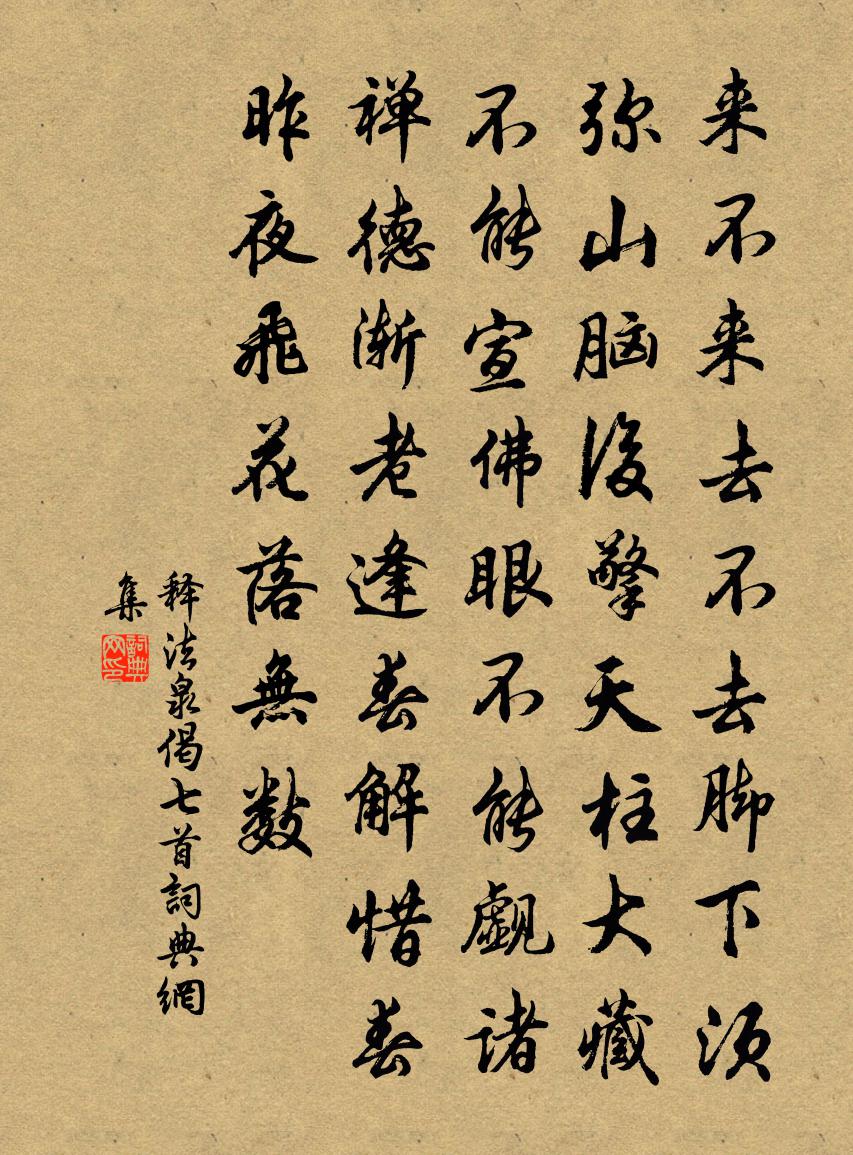 来不来去不去脚下须
弥山脑後擎天柱大藏
不能宣佛眼不能覷诸
禅德渐老逢春解惜春
昨夜飛花落無数
释法泉偈七首詞典網
集
詞典网印